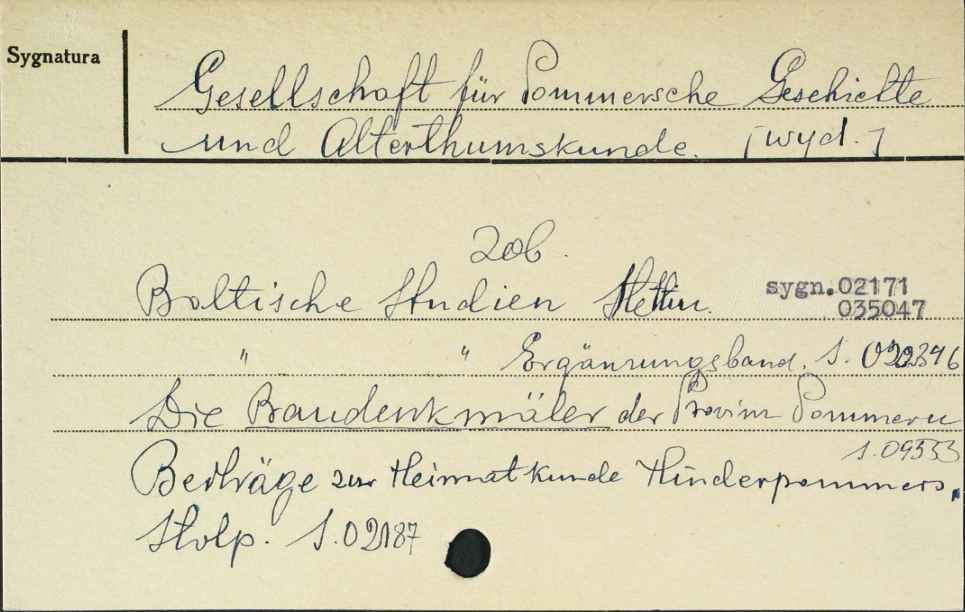 Sygnatura
Gesellschaft für Pommersche Geschichte
und Alterthumskunde. [wyd.]
Zob.
Baltische Studien Stettin. sygn.02171
035047
" " Ergänzungsband. S. 022346
Die Baudenkmäler der Provinz Pommern
S. 09353
Beiträge zur Heimatkunde Hinderpommers.
Stolp. S. 02187